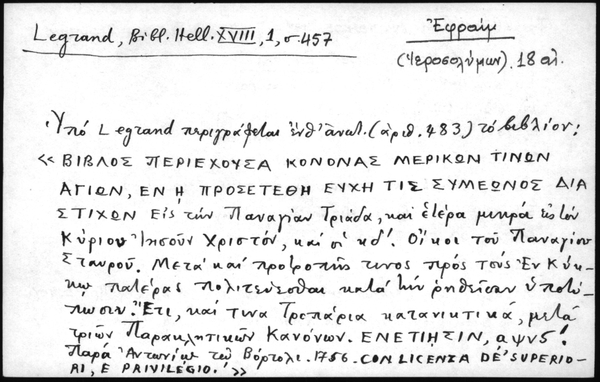 Legrand, Bibl. Hell. XVIII, 1, σ. 457
Ἐφραίμ
(Ἱεροσολύμων). 18 αἰ.
Ὑπό Legrand περιγράφεται ἐνθ' ἀνωτ. (ἀριθ. 483) τό βιβλίον:
« ΒΙΒΛΟΣ ΠΕΡΙΕΧΟΥΣΑ ΚΟΝΟΝΑΣ ΜΕΡΙΚΩΝ ΤΙΝΩΝ
ΑΓΙΩΝ, ΕΝ Η ΠΡΟΣΕΤΕΘΗ ΕΥΧΗ ΤΙΣ ΣΥΜΕΩΝΟΣ ΔΙΑ
ΣΤΙΧΩΝ Εἰς τήν Παναγίαν Τριάδα, καί ἑτέρα μικρά εἰς τόν
Κύριον Ἰησοῦν Χριστόν, καί οἱ κδ'. Οἶκοι τοῦ Παναγίου
Σταυροῦ. Μετά καί προτροπῆς τινος πρός τούς Ἐν Κύκ-
κῳ πατέρας πολιτεύεσθαι κατά τήν ῥηθεῖσαν ὑποτύ-
πωσιν. Ἔτι, καί τινα Τροπάρια κατανικτικά, μετά
τριῶν Παρακλητικῶν Κανόνων. ΕΝΕΤΙΗΣΙΝ, αψνς!
Παρά Ἀντωνίῳ τῷ Βόρτολι. 1756. CON LICENZA DE' SUPERIO-
RI, E PRIVILEGIO. »